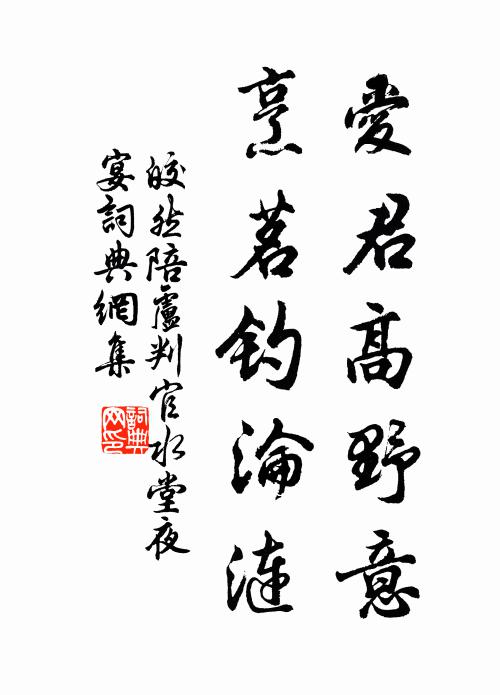 愛君高野意
烹茗釣淪漣
皎然陪盧判官水堂夜
宴詞典網集
詞典网印